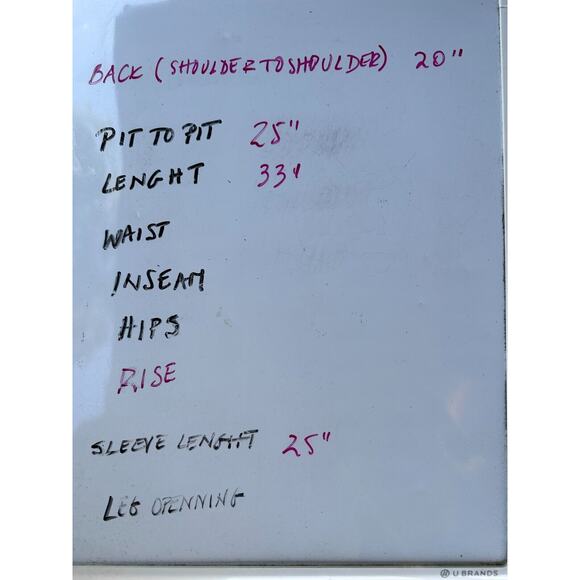 BACK (SHOULDER TO SHOULDER) 20"
PIT TO PIT 25"
LENGHT 33"
WAIST
INSEAM
HIPS
RISE
SLEEVE LENGHT 25"
LEG OPENNING
U BRANDS